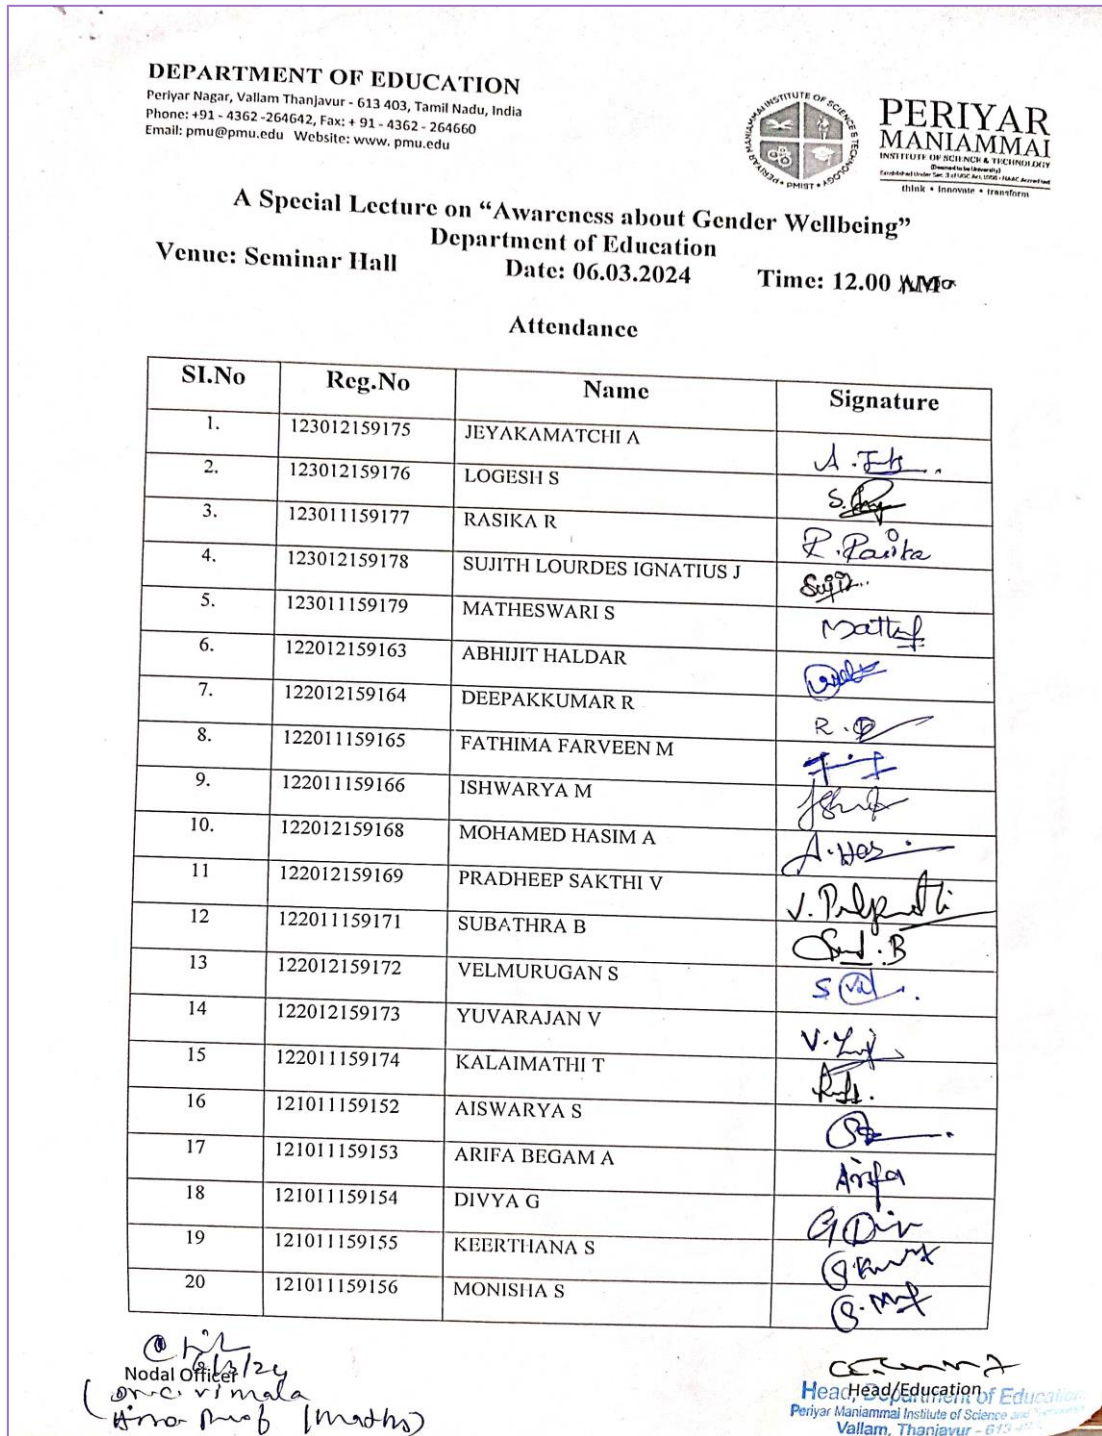 DEPARTMENT OF EDUCATION
Periyar Nagar, Vallam Thanjavur - 613 403, Tamil Nadu, India
Phone: +91 - 4362 -264642, Fax: + 91 - 4362 - 264660
Email: pmu@pmu.edu Website: www. pmu.edu
PERIYAR MANIAMMAI INSTITUTE OF SCIENCE & TECHNOLOGY
PMIST
PERIYAR
MANIAMMAI
INSTITUTE OF SCIENCE & TECHNOLOGY
(Deemed to be University)
Established Under Sec. 3 of UGC Act, 1956 - NAAC Accredited
think • innovate • transform
A Special Lecture on “Awareness about Gender Wellbeing”
Department of Education
Venue: Seminar Hall Date: 06.03.2024 Time: 12.00
Attendance
SI.No Reg.No Name Signature
1. 123012159175 JEYAKAMATCHI A
2. 123012159176 LOGESH S
3. 123011159177 RASIKA R R. Rasika
4. 123012159178 SUJITH LOURDES IGNATIUS J
5. 123011159179 MATHESWARI S
6. 122012159163 ABHIJIT HALDAR
7. 122012159164 DEEPAKKUMAR R
8. 122011159165 FATHIMA FARVEEN M
9. 122011159166 ISHWARYA M
10. 122012159168 MOHAMED HASIM A
11 122012159169 PRADHEEP SAKTHI V
12 122011159171 SUBATHRA B
13 122012159172 VELMURUGAN S
14 122012159173 YUVARAJAN V
15 122011159174 KALAIMATHI T
16 121011159152 AISWARYA S
17 121011159153 ARIFA BEGAM A Arifa
18 121011159154 DIVYA G
19 121011159155 KEERTHANA S
20 121011159156 MONISHA S
6/3/24
Nodal Officer
vimala
(Maths)
Head/Education
Head, Department of Education
Periyar Maniammai Institute of Science and
Vallam, Thanjavur - 613